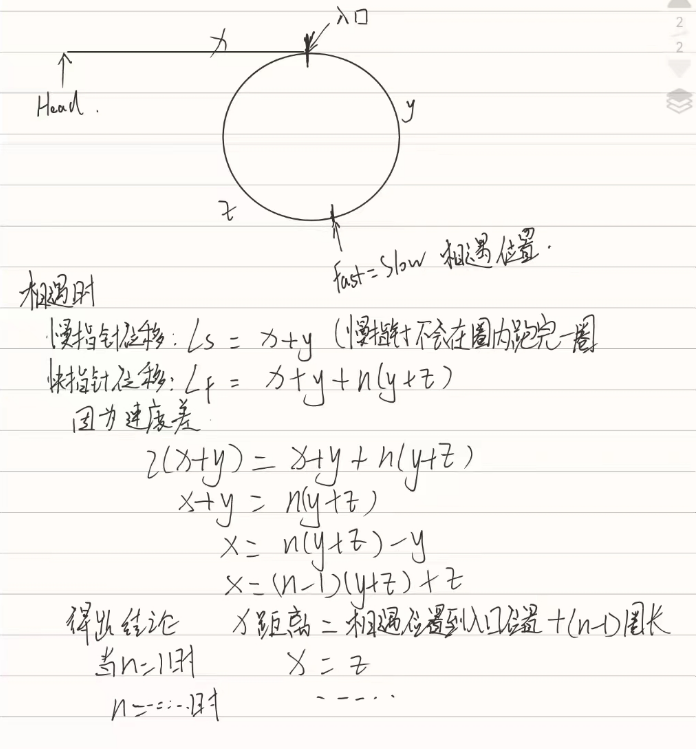 入口
x
2
2
Head.
y
z
fast=Slow 相遇位置.
相遇时
慢指针位移: Ls = x+y (慢指针不会在圈内跑完一圈
快指针位移: Lf = x+y+n(y+z)
因为速度差
2(x+y) = x+y+n(y+z)
x+y = n(y+z)
x = n(y+z)-y
x=(n-1)(y+z)+z
得出结论 x距离=相遇位置到入口位置+(n-1)圈长
当n=1时 x = z
n=……时 ……